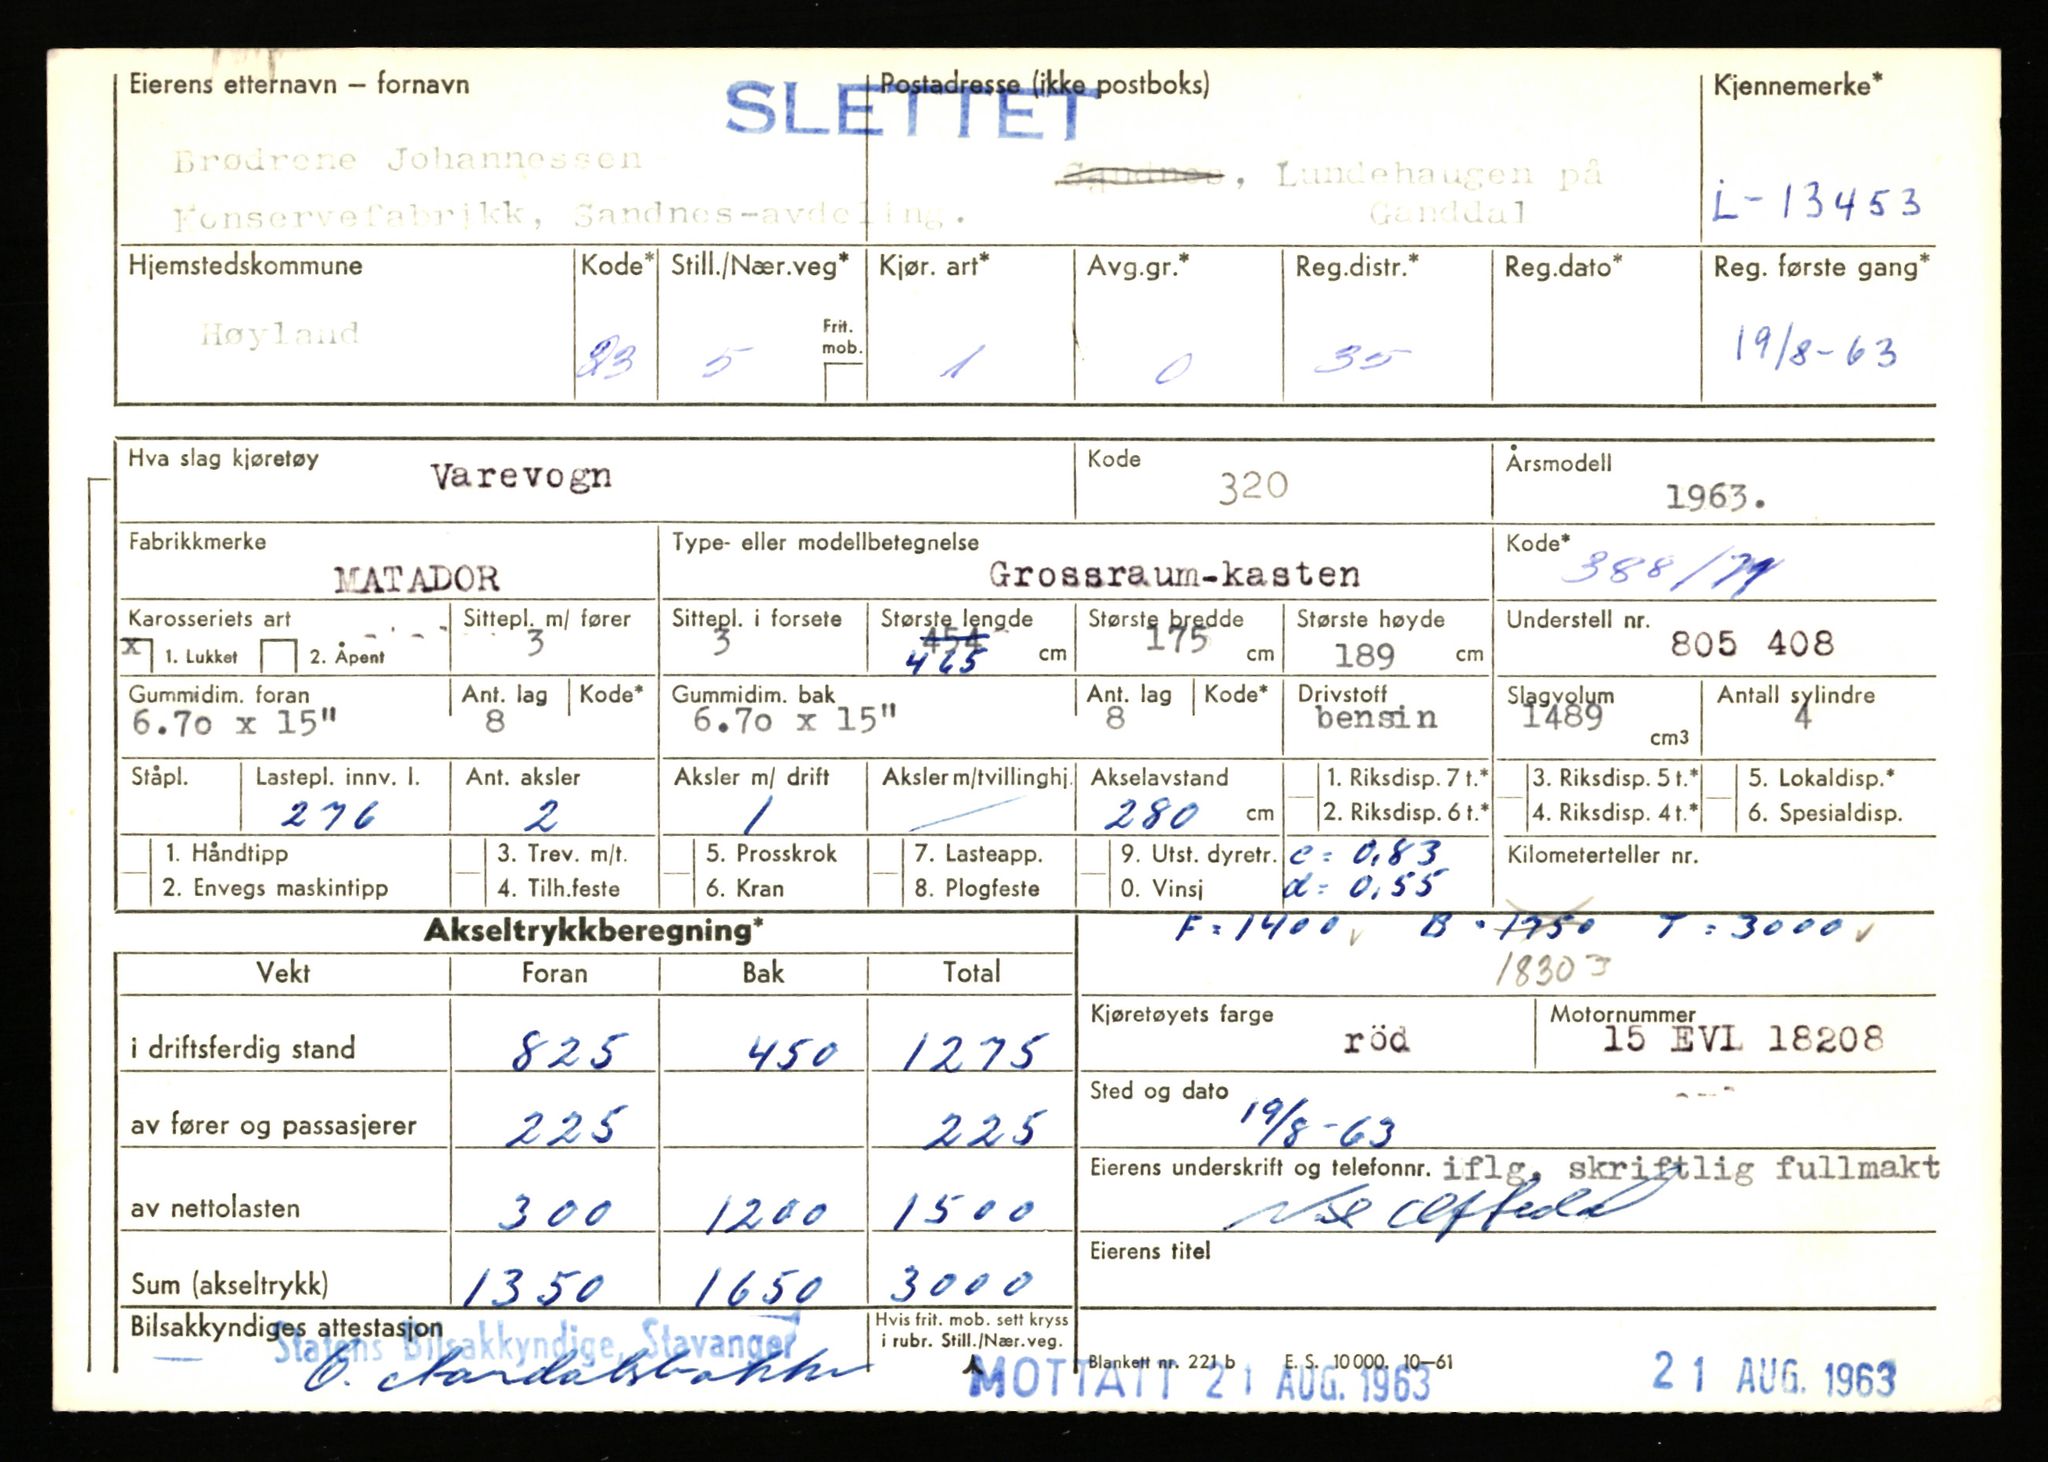 Eierens etternavn – fornavn
SLETTET
Postadresse (ikke postboks)
Kjennemerke*
Brødrene Johannessen
Konservefabrikk, Sandnes-avdeling.
Sandnes, Lundehaugen på
Ganddal
L-13453
Hjemstedskommune
Kode*
Still./Nær.veg*
Kjør. art*
Avg.gr.*
Reg.distr.*
Reg.dato*
Reg. første gang*
Høyland
23
5
Frit.
mob.
1
0
35
19/8-63
Hva slag kjøretøy
Varevogn
Kode
320
Årsmodell
1963.
Fabrikkmerke
MATADOR
Type- eller modellbetegnelse
Grossraum-kasten
Kode*
388/
Karosseriets art
x 1. Lukket 2. Åpent
Sittepl. m/ fører
3
Sittepl. i forsete
3
Største lengde
454
465 cm
Største bredde
175 cm
Største høyde
189 cm
Understell nr.
805 408
Gummidim. foran
6.70 x 15"
Ant. lag
8
Kode*
Gummidim. bak
6.70 x 15"
Ant. lag
8
Kode*
Drivstoff
bensin
Slagvolum
1489 cm3
Antall sylindre
4
Ståpl.
Lastepl. innv. l.
276
Ant. aksler
2
Aksler m/ drift
1
Aksler m/tvillinghj.
Akselavstand
280 cm
1. Riksdisp. 7 t.*
2. Riksdisp. 6 t.*
3. Riksdisp. 5 t.*
4. Riksdisp. 4 t.*
5. Lokaldisp.*
6. Spesialdisp.
1. Håndtipp
2. Envegs maskintipp
3. Trev. m/t.
4. Tilh.feste
5. Prosskrok
6. Kran
7. Lasteapp.
8. Plogfeste
9. Utst. dyretr.
0. Vinsj
c = 0,83
d = 0,55
Kilometerteller nr.
Akseltrykkberegning*
F = 1400 B = 1750 T = 3000
1830
Vekt Foran Bak Total
i driftsferdig stand 825 450 1275
av fører og passasjerer 225 225
av nettolasten 300 1200 1500
Sum (akseltrykk) 1350 1650 3000
Kjøretøyets farge
röd
Motornummer
15 EVL 18208
Sted og dato
19/8-63
Eierens underskrift og telefonnr. iflg. skriftlig fullmakt
Eierens titel
Bilsakkyndiges attestasjon
Statens Bilsakkyndige, Stavanger
Hvis frit. mob. sett kryss
i rubr. Still./Nær.veg.
Blankett nr. 221 b E. S. 10 000. 10–61
MOTTATT 21 AUG. 1963
21 AUG. 1963